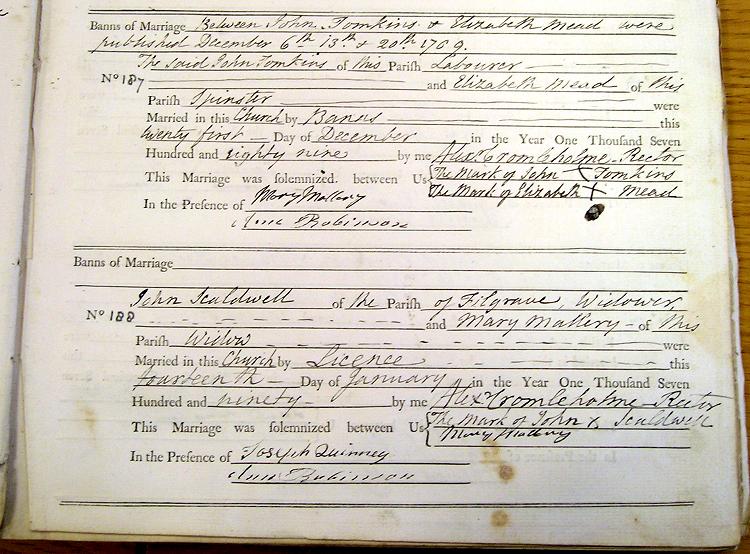 Banns of Marriage Between John Tomkins & Elizabeth Mead were
published December 6th 13th & 20th 1789.
The Said John Tomkins of this Parish Labourer
No 187 and Elizabeth Mead of this
Parish Spinster were
Married in this Church by Banns this
twenty first Day of December in the Year One Thousand Seven
Hundred and eighty nine by me Alex Crombleholme Rector
This Marriage was solemnized between Us The Mark of John X Tomkins
The Mark of Elizabeth X Mead
In the Presence of Mary Mallery
Ann Robinson
Banns of Marriage
John Scaldwell of the Parish of Filgrave, Widower
No 188 and Mary Mallery of this
Parish Widow were
Married in this Church by Licence this
fourteenth Day of January in the Year One Thousand Seven
Hundred and ninety by me Alex Crombleholme Rector
This Marriage was solemnized between Us The Mark of John X Scaldwell
Mary Mallery
In the Presence of Joseph Quinney
Ann Robinson